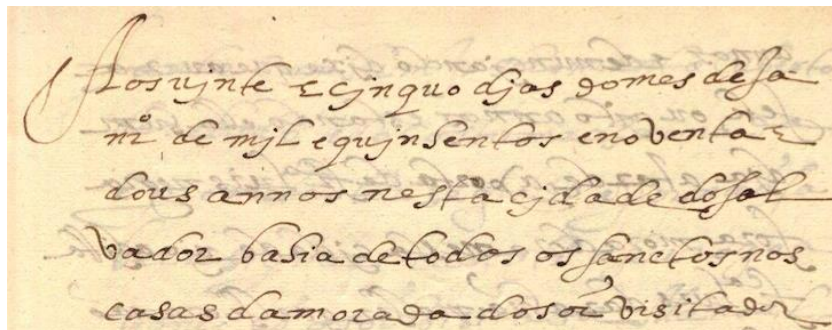 Aos vinte e cjnquo djas do mes de Ja
nrº de mjl e qujnsentos e noventa e
dous annos nesta cjdade do sal
vador bahia de todos os sanctos nas
casas da morada do sor visitador